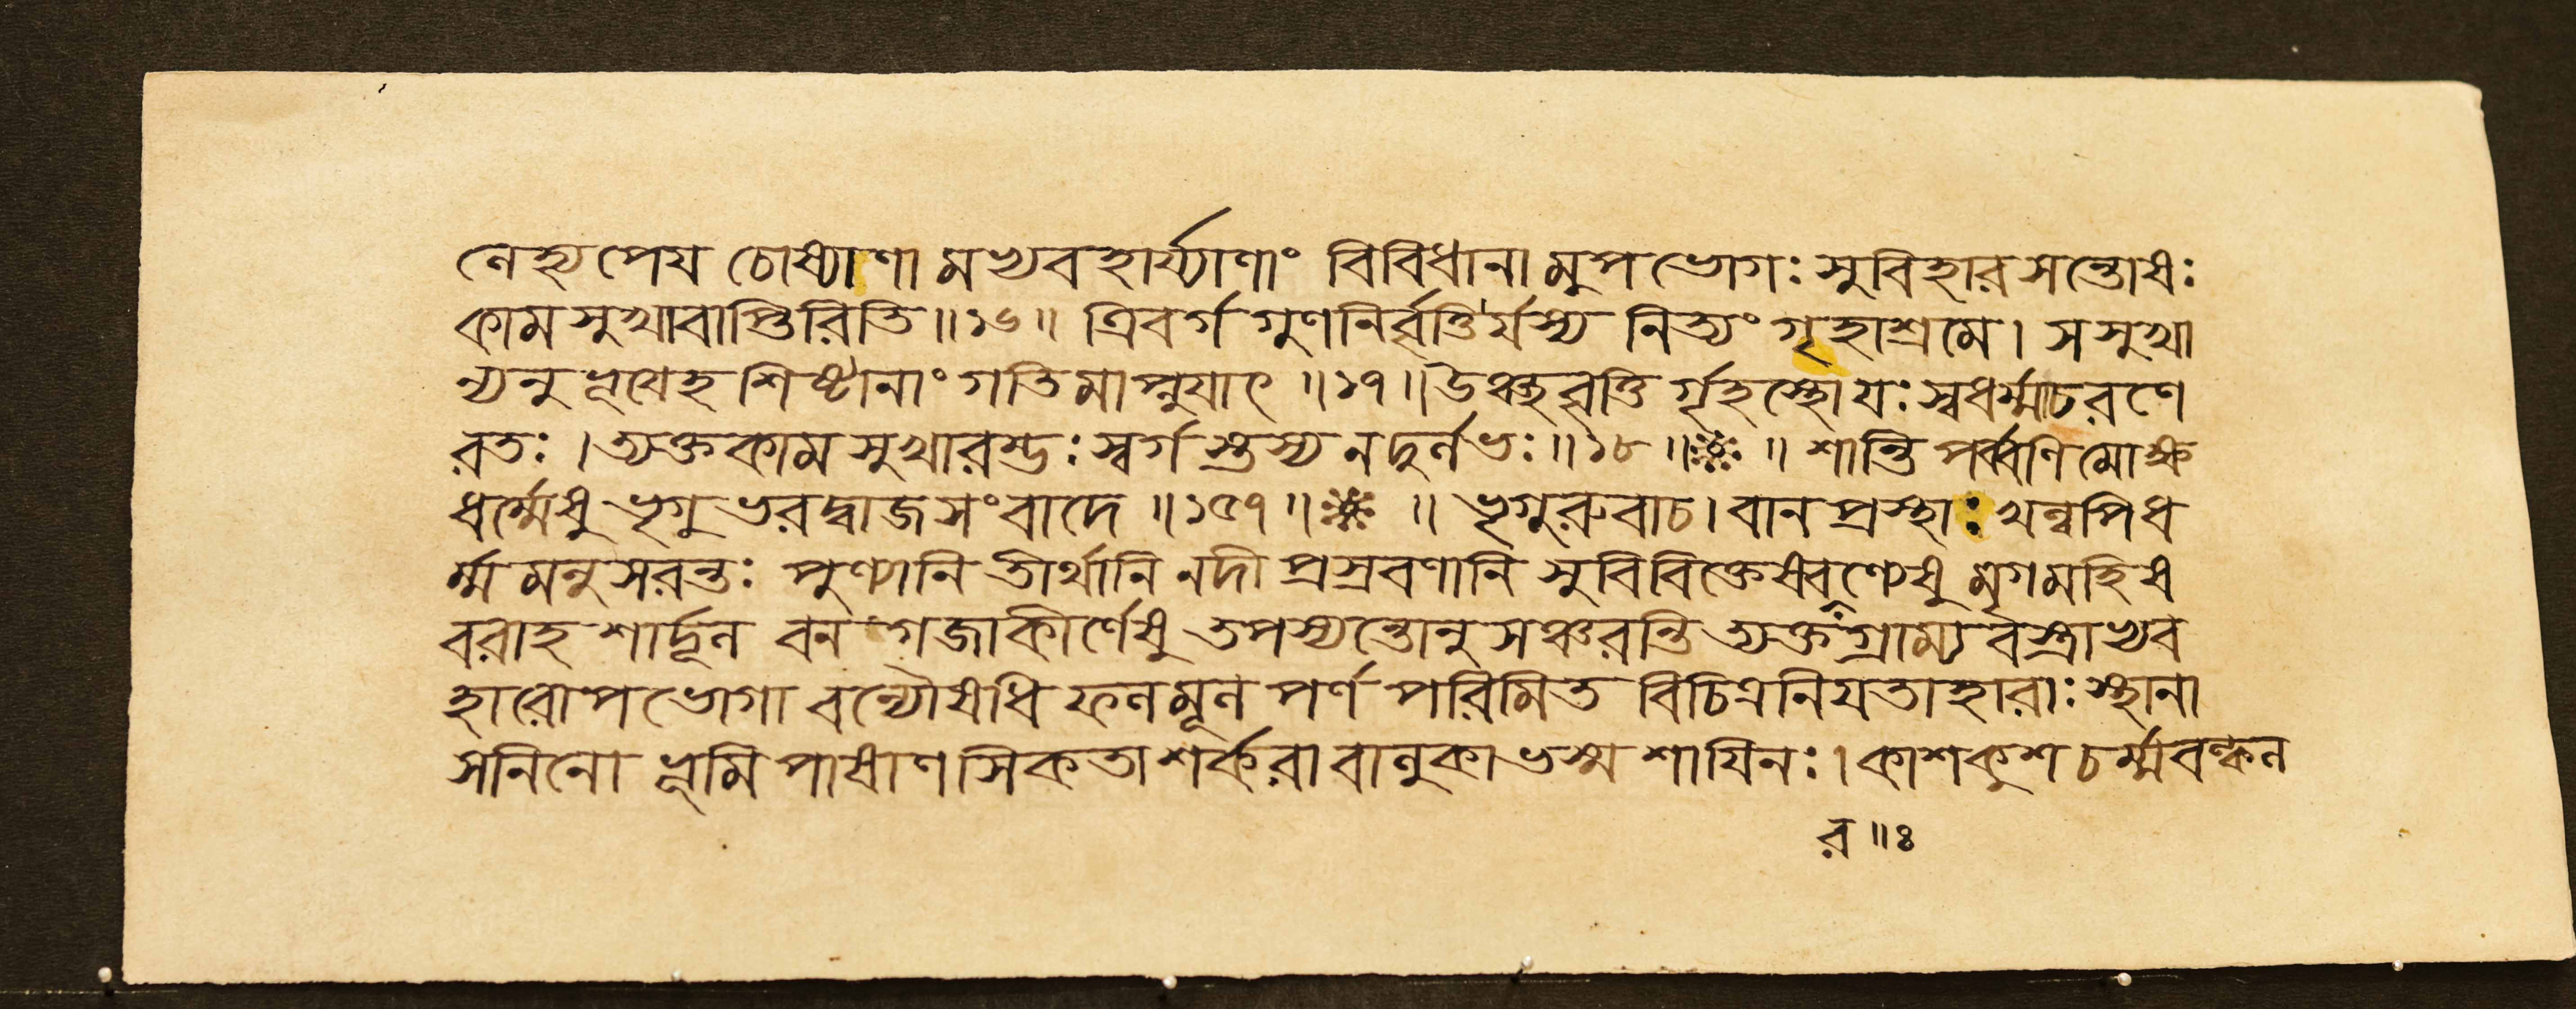 লেহ্যপেয চোষ্যাণা মভ্যবহার্য্যাণাং বিবিধানা মুপভোগঃ সুবিহারসন্তোষঃ
কামসুখাবাপ্তিরিতি॥১৬॥ ত্রিবর্গ গুণনির্বৃত্তির্যস্য নিত্যং গৃহাশ্রমে। সসুখা
ন্যনুভূযেহ শিষ্টানাং গতিমাপ্নুযাৎ ॥১৭॥ উঞ্ছবৃত্তি র্গৃহস্থোযঃ স্বধর্ম্মাচরণে
রতঃ । ত্যক্তকামসুখারম্ভঃ স্বর্গস্তস্য নদুর্লভঃ॥১৮॥ ॥ শান্তিপর্ব্বণি মোক্ষ
ধর্ম্মেষু ভৃগু ভরদ্বাজসংবাদে ॥১৫৭॥ ॥ ভৃগুরুবাচ। বানপ্রস্থাঃ খল্বপিধ
র্ম্ম মনুসরন্তঃ পুণ্যানি তীর্থানি নদী প্রস্রবণানি সুবিবিক্তেষ্বরণ্যেষু মৃগমহিষ
বরাহ শার্দূল বন গজাকীর্ণেষু তপস্যন্তোনুসঞ্চরন্তি ত্যক্তগ্রাম্য বস্ত্রাভ্যব
হারোপভোগা বন্যৌষধি ফলমূল পর্ণ পরিমিত বিচিত্রনিযতাহারাঃ স্থানা
সনিনো ভূমি পাষাণ সিকতা শর্করা বালুকা ভস্ম শাযিনঃ। কাশকুশ চর্ম্মবল্কল
র॥ঃ